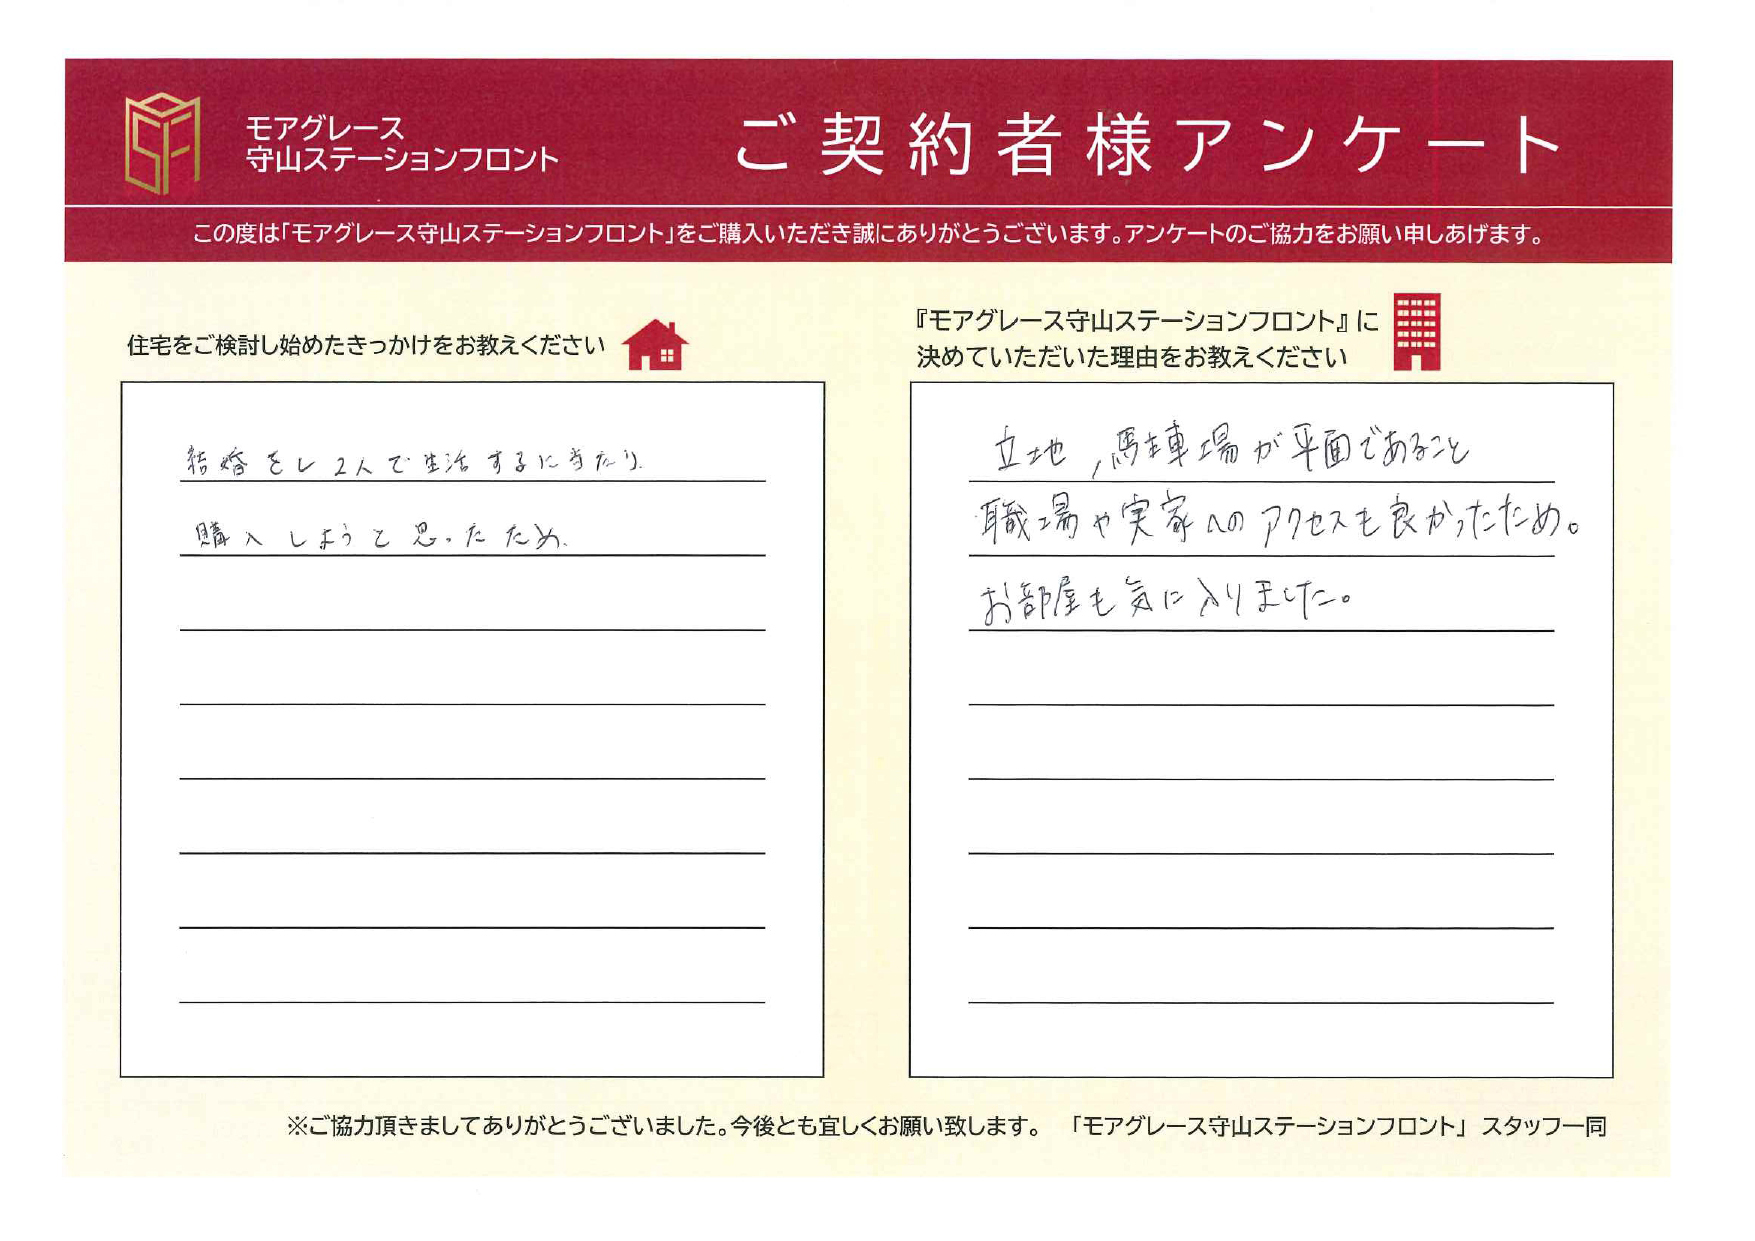 モアグレース
守山ステーションフロント
ご契約者様アンケート
この度は「モアグレース守山ステーションフロント」をご購入いただき誠にありがとうございます。アンケートのご協力をお願い申しあげます。
住宅をご検討し始めたきっかけをお教えください
結婚をし2人で生活するに当たり
購入しようと思ったため.
『モアグレース守山ステーションフロント』に
決めていただいた理由をお教えください
立地,駐車場が平面であること
職場や実家へのアクセスも良かったため。
お部屋も気に入りました。
※ご協力頂きましてありがとうございました。今後とも宜しくお願い致します。 「モアグレース守山ステーションフロント」 スタッフ一同